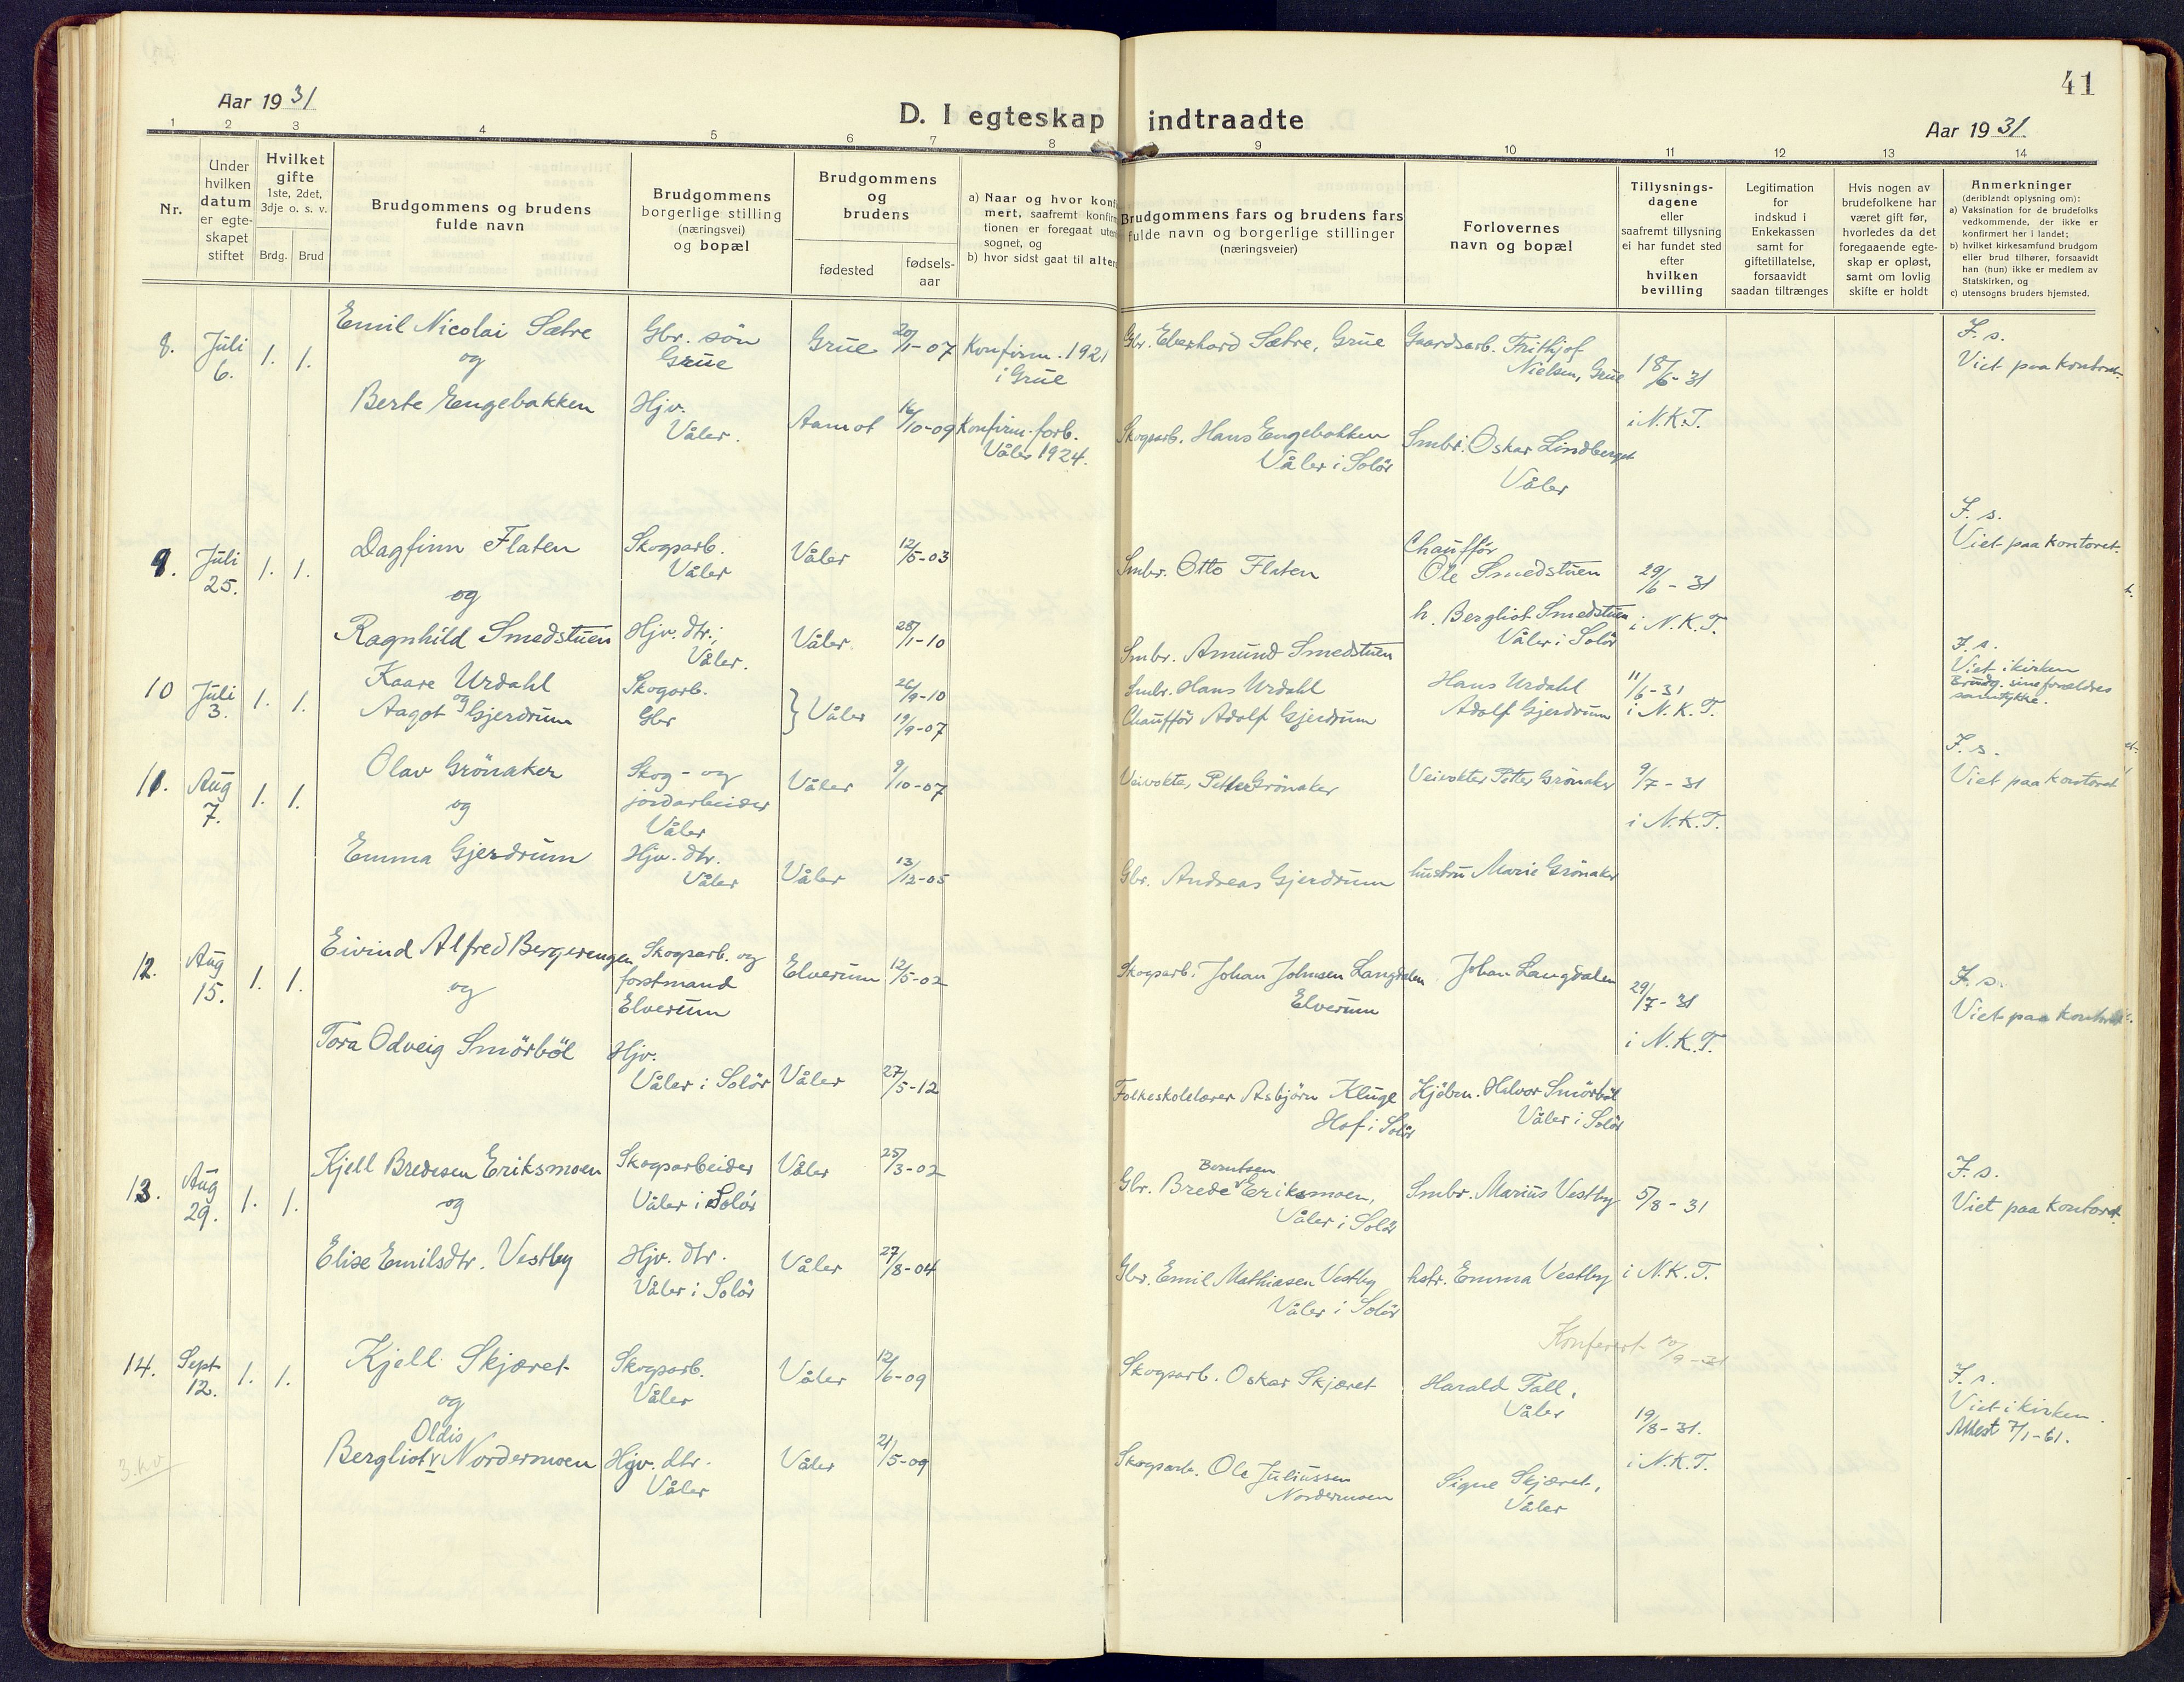 41
Aar 1931
D. I egteskap indtraadte
Aar 1931.
1 2 3 4 5 6 7 8 9 10 11 12 13 14
Nr.
Under
hvilken
datum
er egte-
skapet
stiftet
Hvilket
gifte
1ste, 2det,
3dje o. s. v.
Brdg.
Brud
Brudgommens og brudens
fulde navn
Brudgommens
borgerlige stilling
(næringsvei)
og bopæl
Brudgommens
og
brudens
fødested
fødsels-
aar
a) Naar og hvor konf
mert, saafremt konfirm
tionen er foregaat uten
sognet, og
b) hvor sidst gaat til alter
Brudgommens fars og brudens fars
fulde navn og borgerlige stillinger
(næringsveier)
Forlovernes
navn og bopæl
Tillysnings-
dagene
eller
saafremt tillysning
ei har fundet sted
efter
hvilken
bevilling
Legitimation
for
indskud i
Enkekassen
samt for
giftetillatelse,
forsaavidt
saadan tiltrænges
Hvis nogen av
brudefolkene har
været gift før,
hvorledes da det
foregaaende egte-
skap er opløst,
samt om lovlig
skifte er holdt
Anmerkninger
(deriblandt oplysning om):
a) Vaksination for de brudefolks
vedkommende, der ikke er
konfirmert her i landet;
b) hvilket kirkesamfund brudgom
eller brud tilhører, forsaavidt
han (hun) ikke er medlem av
Statskirken, og
c) utensogns bruders hjemsted.
8.
Juli
6.
1.
1.
Emil Nicolai Sætre
og
Berte Engebakken
Gbr. søn
Grue
Hjv.
Våler.
Grue
Aamot
20/1-07
16/10-09
Konfirm. 1921
i Grue
Konfirm. forb.
Våler 1924.
Gbr. Eberhard Sætre, Grue
Skogsarb. Hans Engebakken
Våler i Solör
Gaardsarb. Frithjof
Nielsen, Grue
Smbr. Oskar Lindberget
Våler
18/6-31
i N.K.T.
F. s.
Viet paa kontoret.
9.
Juli
25.
1.
1.
Dagfinn Flaten
og
Ragnhild Smedstuen
Skogsarb.
Våler
Hjv. dtr.;
Våler.
Våler
Våler
12/5-03
28/1-10
Smbr. Otto Flaten
Smbr. Amund Smedstuen
Chaufför
Ole Smedstuen
h. Bergliot Smedstuen
Våler i Solör
29/6-31
i N.K.T.
F. s.
Viet paa kontoret.
10
Juli
3.
1.
1.
Kaare Urdahl
og
Aagot Gjerdrum
Skogarb.
Gbr
} Våler
26/9-10
19/9-07
Smbr. Hans Urdahl
Chaufför Adolf Gjerdrum
Hans Urdahl
Adolf Gjerdrum
11/6-31
i N.K.T.
F. s.
Viet i kirken
Brudg. sine forældres
samtykke.
11.
Aug
7.
1.
1.
Olav Grönaker
og
Emma Gjerdrum
Skog- og
jordarbeider
Våler
Hjv. dtr.
Våler
Våler
Våler
9/10-07
13/12-05
Veivokte, Petter Grönaker
Gbr. Andreas Gjerdrum
Veivokter Petter Grönaker
hustru Marie Grönaker
9/7-31
i N.K.T.
F. s.
Viet paa kontoret
12.
Aug
15.
1.
1.
Eivind Alfred Bergerengen
og
Tora Odveig Smörböl
Skogsarb. og
forstmand
Elverum
Hjv.
Våler i Solör
Elverum
Våler
12/5-02
27/5-12
Skogsarb. Johan Johnsen Langdalen
Elverum
Folkeskolelærer Asbjörn Kluge
Hof i Solör
Johan Langdalen
Kjöbm. Halvor Smörböl
Våler i Solör
29/7-31
i N.K.T.
F. s.
Viet paa kontoret.
13.
Aug
29.
1.
1.
Kjell Bredesen Eriksmoen
og
Elise Emilsdtr. Vestby
Skogsarbeider
Våler i Solör
Hjv. dtr.
Våler i Solör
Våler
Våler
25/3-02
27/8-04
Berntsen
Gbr. Brede Eriksmoen,
Våler i Solör
Gbr. Emil Mathiasen Vestby
Våler i Solör
Smbr. Marius Vestby
hstr. Emma Vestby
5/8-31
i N.K.T.
F. s.
Viet paa kontoret.
Konferert 10/9-31
14.
Sept
12.
1.
1.
Kjell Skjæret
og
Oldis
Bergliot Nordermoen
Skogsarb.
Våler
Hjv. dtr.
Våler
Våler
Våler
12/6-09
21/5-09
Skogsarb. Oskar Skjæret
Skogsarb. Ole Juliussen
Nordermoen
Harald Fall,
Våler
Signe Skjæret,
Våler
19/8-31.
i N.K.T.
F. s.
Viet i kirken.
Attest 7/1-61.